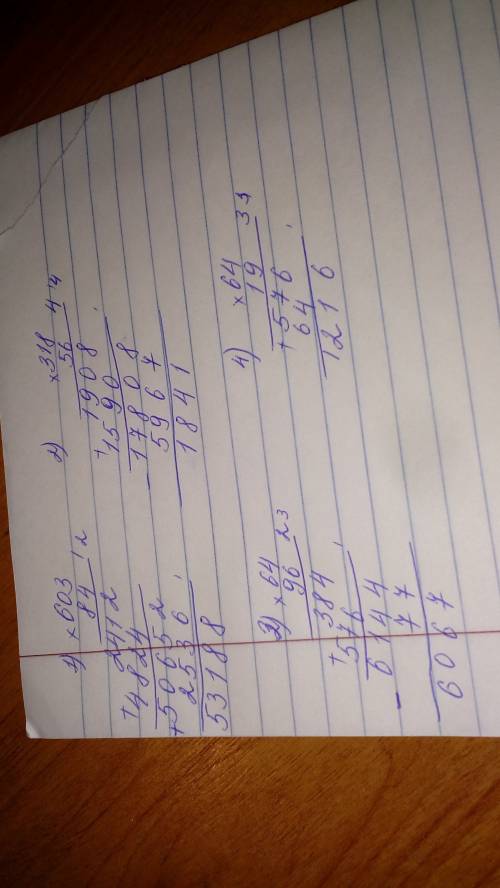 1) ×603 12
84
2412
+4824
50652
+2536
53188
2) ×318 44
56
1908
+1590
17808
-5967
1841
3) ×64 23
96
384
+576
6144
-77
6067
4) ×64 33
19
+576
64
1216